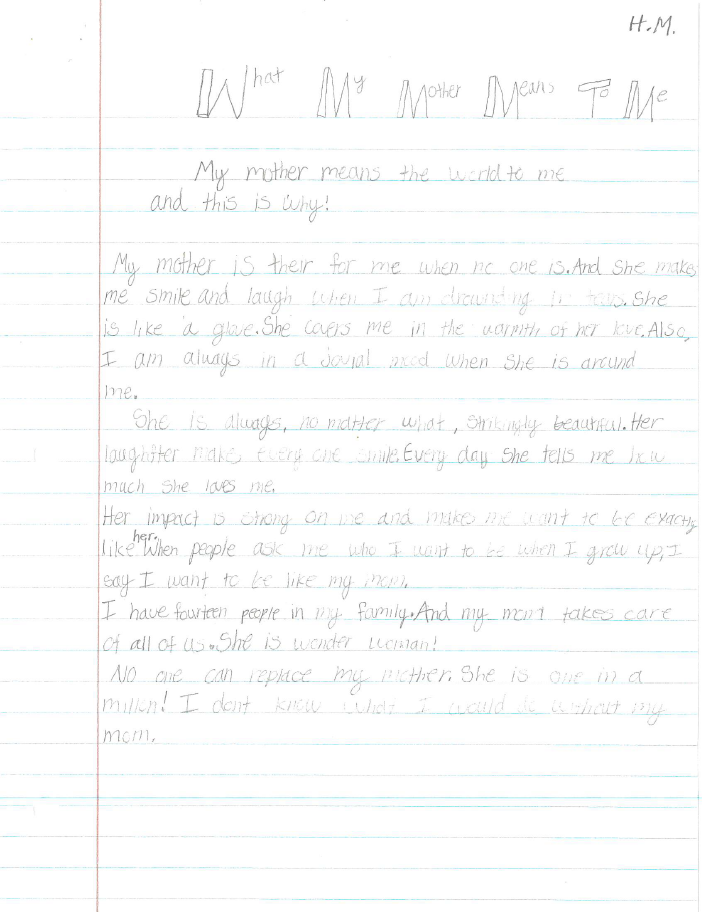 H.M.
What My Mother Means To Me
My mother means the world to me
and this is why!
My mother is their for me when no one is. And she makes
me smile and laugh when I am drownding in tears. She
is like a glove. She covers me in the warmth of her love. Also,
I am always in a jovial mood when she is around
me.
She is always, no matter what, strikingly beautiful. Her
laughter makes every one smile. Every day she tells me how
much she loves me.
Her impact is strong on me and makes me want to be exactly
like her. When people ask me who I want to be when I grow up, I
say I want to be like my mom.
I have fourteen people in my family. And my mom takes care
of all of us. She is wonder woman!
No one can replace my mother. She is one in a
million! I dont know what I would do without my
mom.